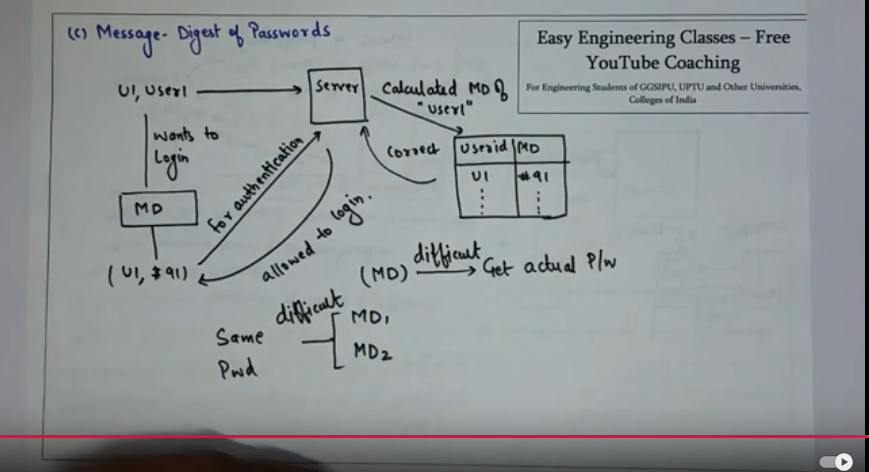 (c) Message-Digest of Passwords
Easy Engineering Classes – Free
YouTube Coaching
For Engineering Students of GGSIPU, UPTU and Other Universities,
Colleges of India
U1, User1
Server
Calculated MD of
"User1"
wants to
Login
For authentication
Correct
Userid MD
U1 #91
MD
allowed to login.
(U1, $91)
(MD) difficult Get actual P/w
difficult
Same
Pwd
MD1
MD2